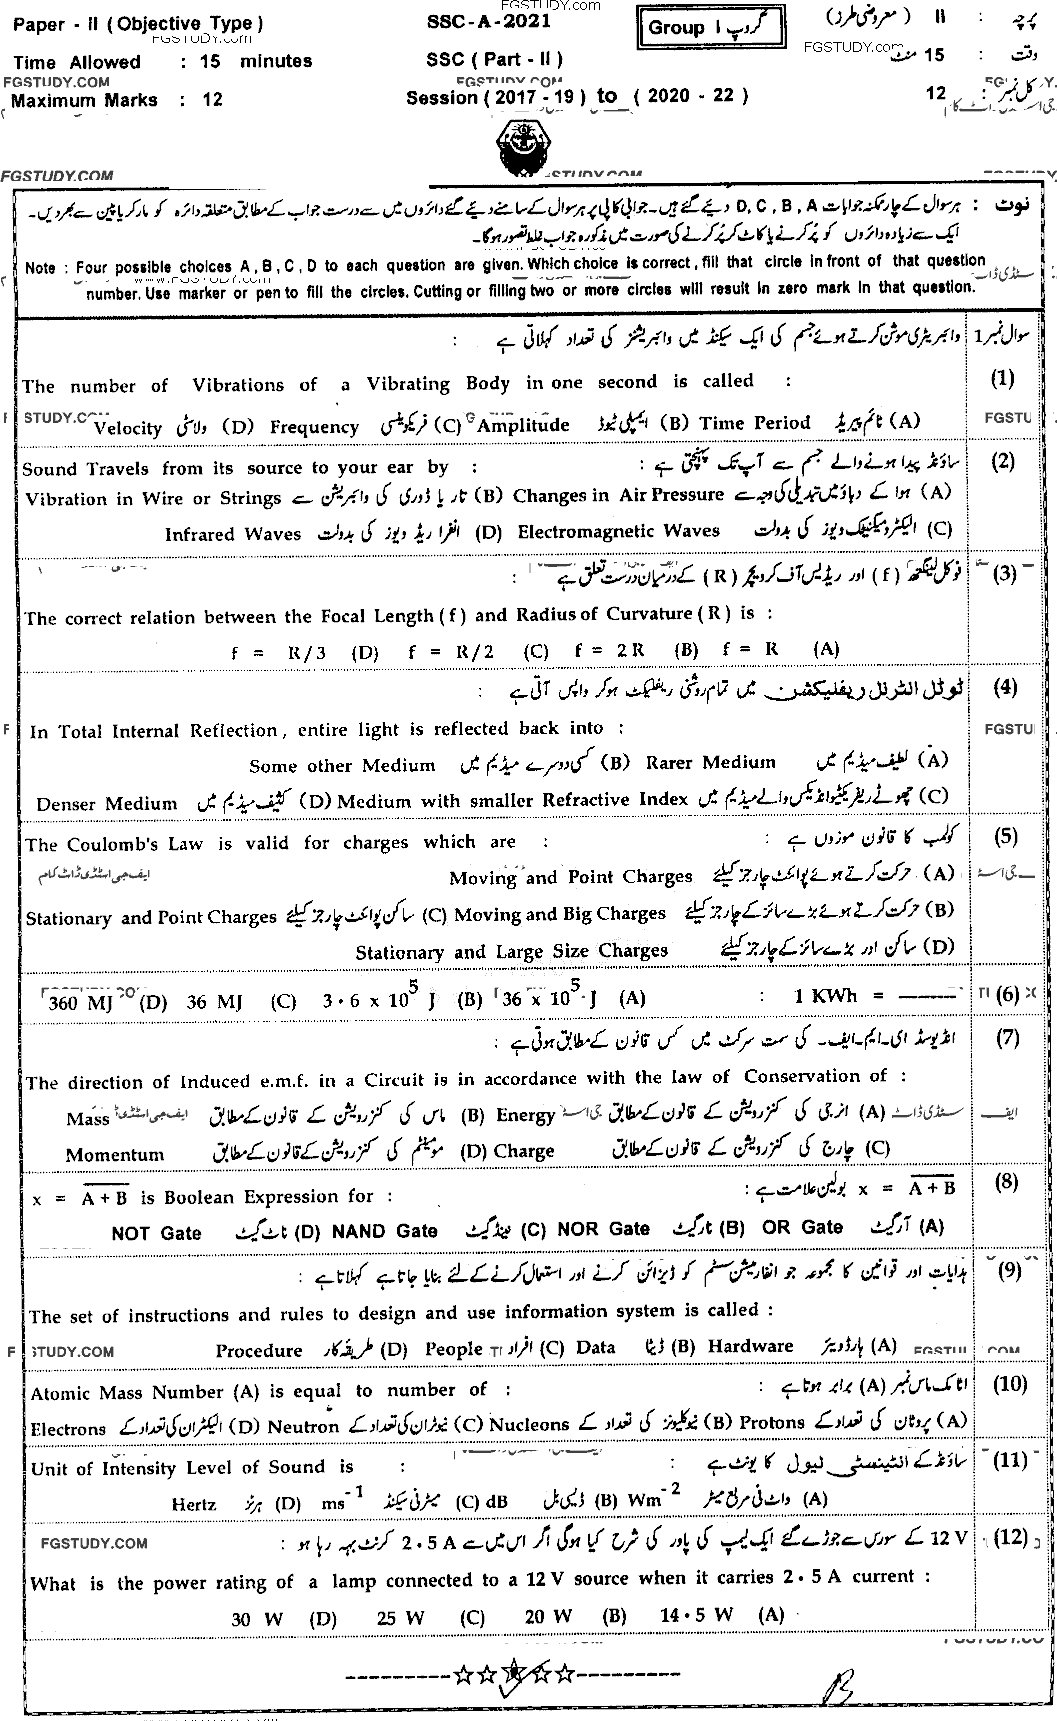 FGSTUDY.COM
Paper - II ( Objective Type ) SSC-A-2021 Group I گروپ پرچہ : II ( معروضی طرز )
FGSTUDY.com
Time Allowed : 15 minutes SSC ( Part - II ) FGSTUDY.com وقت : 15 منٹ
FGSTUDY.COM
Maximum Marks : 12 Session ( 2017 - 19 ) to ( 2020 - 22 ) کل نمبر : 12
FGSTUDY.COM
نوٹ : ہر سوال کے چار ممکنہ جوابات D, C, B, A دیئے گئے ہیں۔ جوابی کاپی پر ہر سوال کے سامنے دیئے گئے دائروں میں سے درست جواب کے مطابق متعلقہ دائرہ کو مارکر یا پین سے بھر دیں۔
ایک سے زیادہ دائروں کو پُر کرنے یا کاٹ کر پُر کرنے کی صورت میں مذکورہ جواب غلط تصور ہوگا۔
Note : Four possible choices A , B , C , D to each question are given. Which choice is correct , fill that circle in front of that question
number. Use marker or pen to fill the circles. Cutting or filling two or more circles will result in zero mark in that question.
سوال نمبر 1 وائبریٹری موشن کرتے ہوئے جسم کی ایک سیکنڈ میں وائبریشنز کی تعداد کہلاتی ہے :
The number of Vibrations of a Vibrating Body in one second is called : (1)
Velocity ولاسٹی (D) Frequency فریکوئنسی (C) Amplitude ایمپلی ٹیوڈ (B) Time Period ٹائم پیریڈ (A)
Sound Travels from its source to your ear by : ساؤنڈ پیدا ہونے والے جسم سے آپ تک پہنچتی ہے : (2)
Vibration in Wire or Strings تار یا ڈوری کی وائبریشن سے (B) Changes in Air Pressure ہوا کے دباؤ میں تبدیلی کی وجہ سے (A)
Infrared Waves انفرا ریڈ ویوز کی بدولت (D) Electromagnetic Waves الیکٹرومیگنیٹک ویوز کی بدولت (C)
فوکل لینگتھ ( f ) اور ریڈیس آف کرویچر ( R ) کے درمیان درست تعلق ہے : (3)
The correct relation between the Focal Length ( f ) and Radius of Curvature ( R ) is :
f = R/3 (D) f = R/2 (C) f = 2R (B) f = R (A)
ٹوٹل انٹرنل ریفلیکشن میں تمام روشنی ریفلیکٹ ہو کر واپس آتی ہے : (4)
In Total Internal Reflection , entire light is reflected back into :
Some other Medium کسی دوسرے میڈیم میں (B) Rarer Medium لطیف میڈیم میں (A)
Denser Medium کثیف میڈیم میں (D) Medium with smaller Refractive Index چھوٹے ریفریکٹو انڈیکس والے میڈیم میں (C)
The Coulomb's Law is valid for charges which are : کولمب کا قانون موزوں ہے : (5)
ایف جی اسٹڈی ڈاٹ کام Moving and Point Charges حرکت کرتے ہوئے پوائنٹ چارجز کیلئے (A)
Stationary and Point Charges ساکن پوائنٹ چارجز کیلئے (C) Moving and Big Charges حرکت کرتے ہوئے بڑے سائز کے چارجز کیلئے (B)
Stationary and Large Size Charges ساکن اور بڑے سائز کے چارجز کیلئے (D)
360 MJ (D) 36 MJ (C) 3·6 x 10⁵ J (B) 36 x 10⁵ J (A) : 1 KWh = ——— (6)
انڈیوسڈ ای۔ایم۔ایف۔ کی سمت سرکٹ میں کس قانون کے مطابق ہوتی ہے : (7)
The direction of Induced e.m.f. in a Circuit is in accordance with the law of Conservation of :
Mass ماس کی کنزرویشن کے قانون کے مطابق (B) Energy انرجی کی کنزرویشن کے قانون کے مطابق (A)
Momentum مومینٹم کی کنزرویشن کے قانون کے مطابق (D) Charge چارج کی کنزرویشن کے قانون کے مطابق (C)
x = \overline{A + B} is Boolean Expression for : x = \overline{A + B} بولین علامت ہے : (8)
NOT Gate ناٹ گیٹ (D) NAND Gate نینڈ گیٹ (C) NOR Gate نار گیٹ (B) OR Gate آر گیٹ (A)
ہدایات اور قوانین کا مجموعہ جو انفارمیشن سسٹم کو ڈیزائن کرنے اور استعمال کرنے کے لئے بنایا جاتا ہے کہلاتا ہے : (9)
The set of instructions and rules to design and use information system is called :
Procedure طریقہ کار (D) People افراد (C) Data ڈیٹا (B) Hardware ہارڈویئر (A)
Atomic Mass Number (A) is equal to number of : اٹامک ماس نمبر (A) برابر ہوتا ہے : (10)
Electrons الیکٹران کی تعداد کے (D) Neutron نیوٹران کی تعداد کے (C) Nucleons نیوکلیونز کی تعداد کے (B) Protons پروٹان کی تعداد کے (A)
Unit of Intensity Level of Sound is : ساؤنڈ کے انٹینسٹی لیول کا یونٹ ہے : (11)
Hertz ہرٹز (D) ms⁻¹ میٹر فی سیکنڈ (C) dB ڈیسی بل (B) Wm⁻² واٹ فی مربع میٹر (A)
FGSTUDY.COM 12 V کے سورس سے جوڑے گئے ایک لیمپ کی پاور کی شرح کیا ہوگی اگر اس میں سے 2·5 A کرنٹ بہہ رہا ہو : (12)
What is the power rating of a lamp connected to a 12 V source when it carries 2·5 A current :
30 W (D) 25 W (C) 20 W (B) 14·5 W (A)